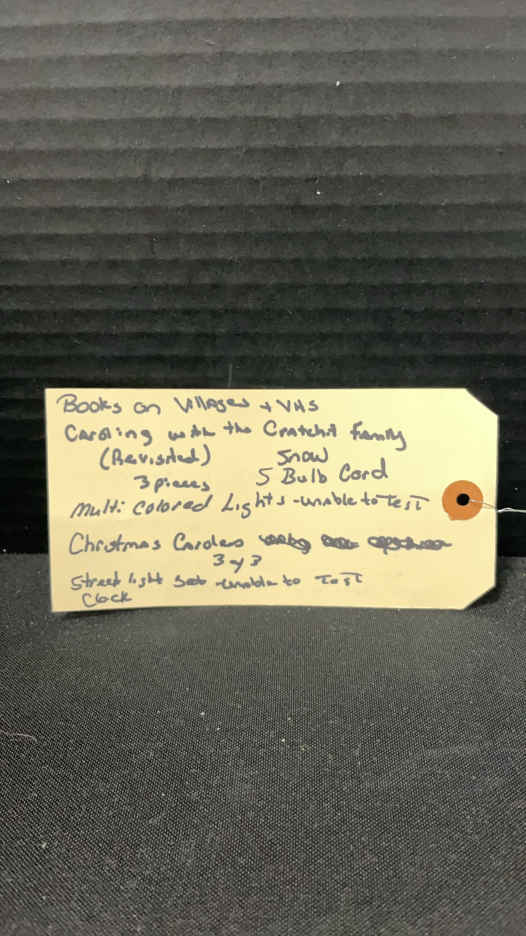 Books on Villages + VHS
Caroling with the Cratchit Family
(Revisited) Snow
3 pieces 5 Bulb Cord
Multi colored Lights - unable to Test
Christmas Carolers
3 of 3
Street light Set - unable to Test
Clock